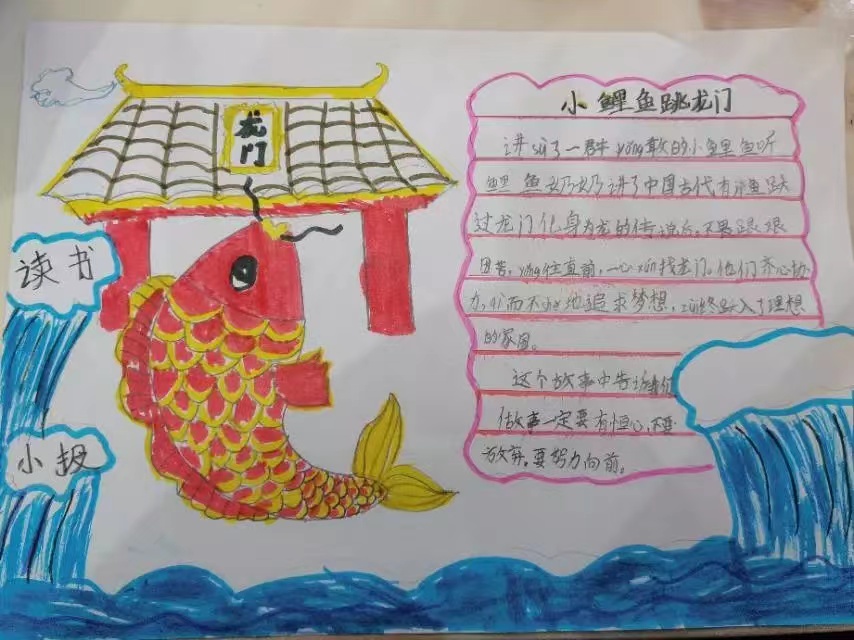 龙门
读书
小报
小鲤鱼跳龙门
讲述了一群yǒng敢的小鲤鱼听
鲤鱼奶奶讲了中国古代有鲤鱼跃
过龙门化身为龙的传说后,不畏艰
困苦,yǒng往直前,一心xún找龙门。他们齐心协
力,而不 地追求梦想, 终 入了理想
的家园。
这个故事中告诉我们
做事一定要有恒心,不要
放弃,要努力向前。